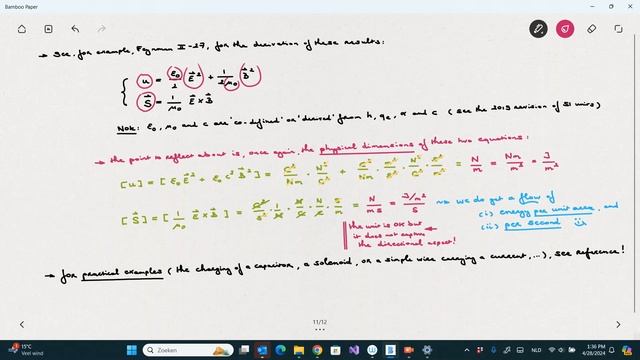 Bamboo Paper
→ See, for example, Feynman II-27, for the derivation of these results:
u = ε₀/2 E⃗² + 1/2μ₀ B⃗²
S⃗ = 1/μ₀ E⃗ × B⃗
Note: ε₀, μ₀ and c are 'co-defined' or 'derived' from h, qe, α and c (see the 2019 revision of SI units)
→ the point to reflect about is, once again, the physical dimensions of these two equations:
[u] = [ε₀ E⃗² + ε₀ c² B⃗²] = C²/Nm² · N²/C² + C²/Nm² · m²/s² · N²/C² · s²/m² = N/m² = Nm/m³ = J/m³
[S⃗] = [1/μ₀ E⃗ × B⃗] = = N/ms = J/m²/s → we do get a flow of
(i) energy per unit area, and
(ii) per second
the unit is OK but
it does not capture
the directional aspect!
→ for practical examples (the charging of a capacitor, a solenoid, or a simple wire carrying a current, ...), see reference!
11/12
15°C
Veel wind
Zoeken
NLD
1:36 PM
4/28/2024